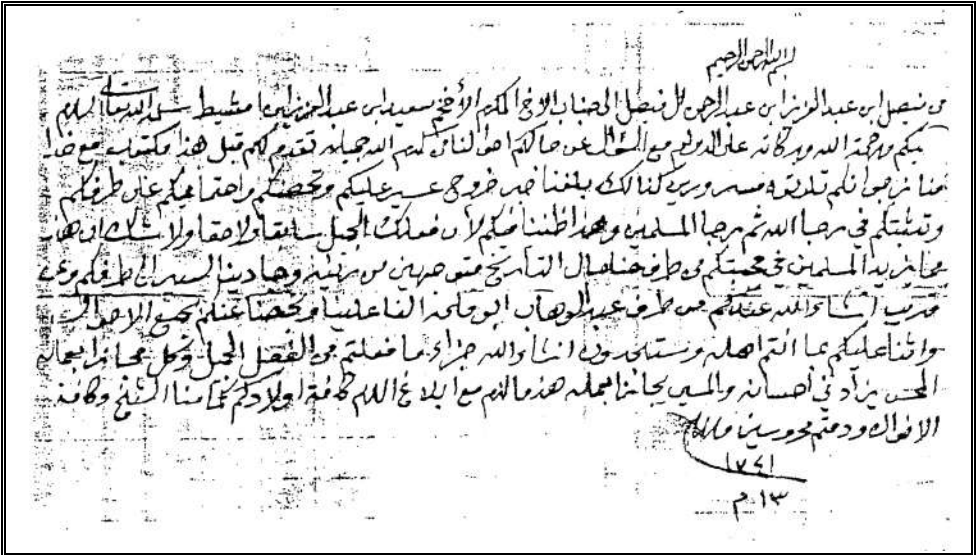 بسم الله الرحمن الرحيم
من فيصل ابن عبد العزيز ابن عبد الرحمن ال فيصل الى جناب الاخ المكرم الأفخم سعيد ابن عبد العزيز ابن مشيط سلمه الله تعالى السلام
عليكم ورحمة الله وبركاته على الدوام مع السؤال عن حالكم احوالنا من كرم الله جميله تقدم لكم قبل هذا مكتوب مع
منا نرجوا انكم تلقيتوه مسرورين كذالك بلغنا خبر خروج عسير عليكم وتحصنكم على طرفكم
وتثبتكم في رجا الله ثم رجا المسلمين وهذا ظننا فيكم لأن فعلك الجميل سابقا ولا حقا ولا شك ان هذا
مما يزيد المسلمين في محبتكم من طرفنا حال التأريخ متوجهين من وحادينا السير الى طرفكم وعن
قريب انشاء الله عندكم من طرف عبد الوهاب ابو ملحه الفا علينا عنكم بجميع الاحوال
واثنا عليكم بما انتم اهله وستجدون انشاء الله جزاء ما فعلتم من الفضل الجميل وكل مجازا بعماله
المحسن يزاد في أحسانه والمسي يجازا بعمله هذا ما لزم مع ابلاغ السلام كافة اولادكم كما منا الشيخ وكافة
الاخوان ودمتم محروسين والسلام
١٣٤١
١٣ م